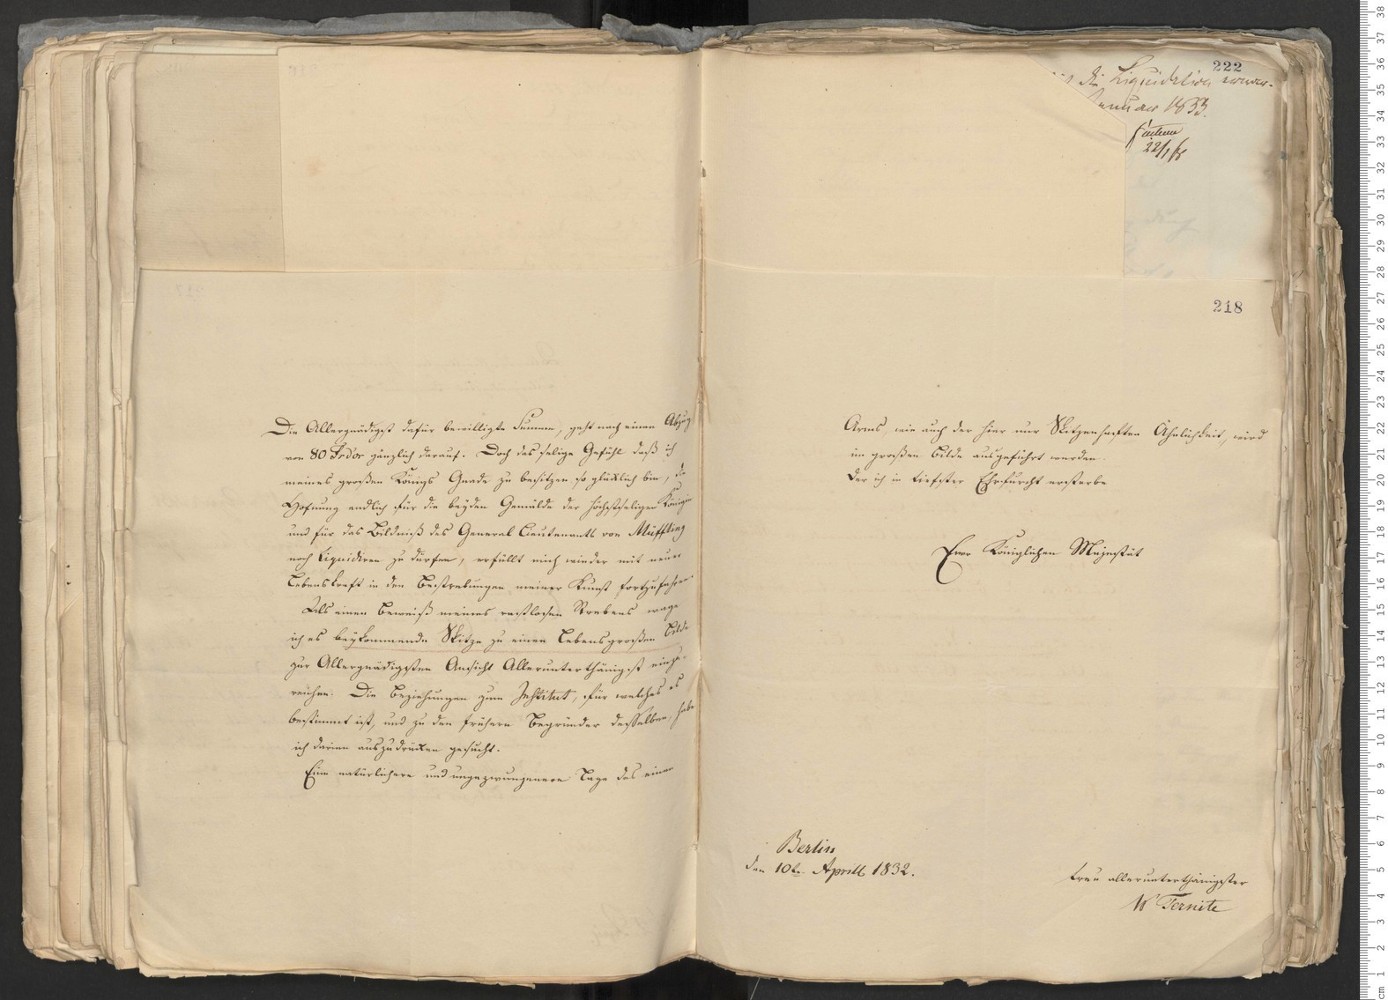 Die Allergnädigst dafür bewilligte Summe, geht nach einem Abzug
von 80 Frdor gänzlich darauf. Doch das selige Gefühl daß ich
meines großen Königs Gnade zu besitzen so glücklich bin, die
Hofnung endlich für die beyden Gemälde der Höchstseligen Königin
und für das Bildniß des General Lieutenants von Müffling
noch liquidiren zu dürfen, erfüllt mich wieder mit neuer
Lebenskraft in den Bestrebungen meiner Kunst fortzufahren.
Als einen Beweiß meines rastlosen Strebens wage
ich es beykommende Skitze zu einem Lebensgroßen Bilde
zur Allergnädigsten Ansicht Allerunterthänigst einzu-
reichen. Die Beziehungen zum Institut, für welches es
bestimmt ist, und zu den frühern Begründer desselben, habe
ich darinn auszudrücken gesucht.
Eine natürlichere und ungezwungenere Lage des einen
222
die Liquidation
Januar 1833.
22/1
218
Arms, wie auch der hier nur Skitzenhaften Ähnlichkeit, wird
im großen Bilde ausgeführt werden.
Der ich in tiefster Ehrfurcht ersterbe
Ewr Königlichen Majestät
Berlin
den 10t. Aprill 1832.
treu allerunterthänigster
W Ternite